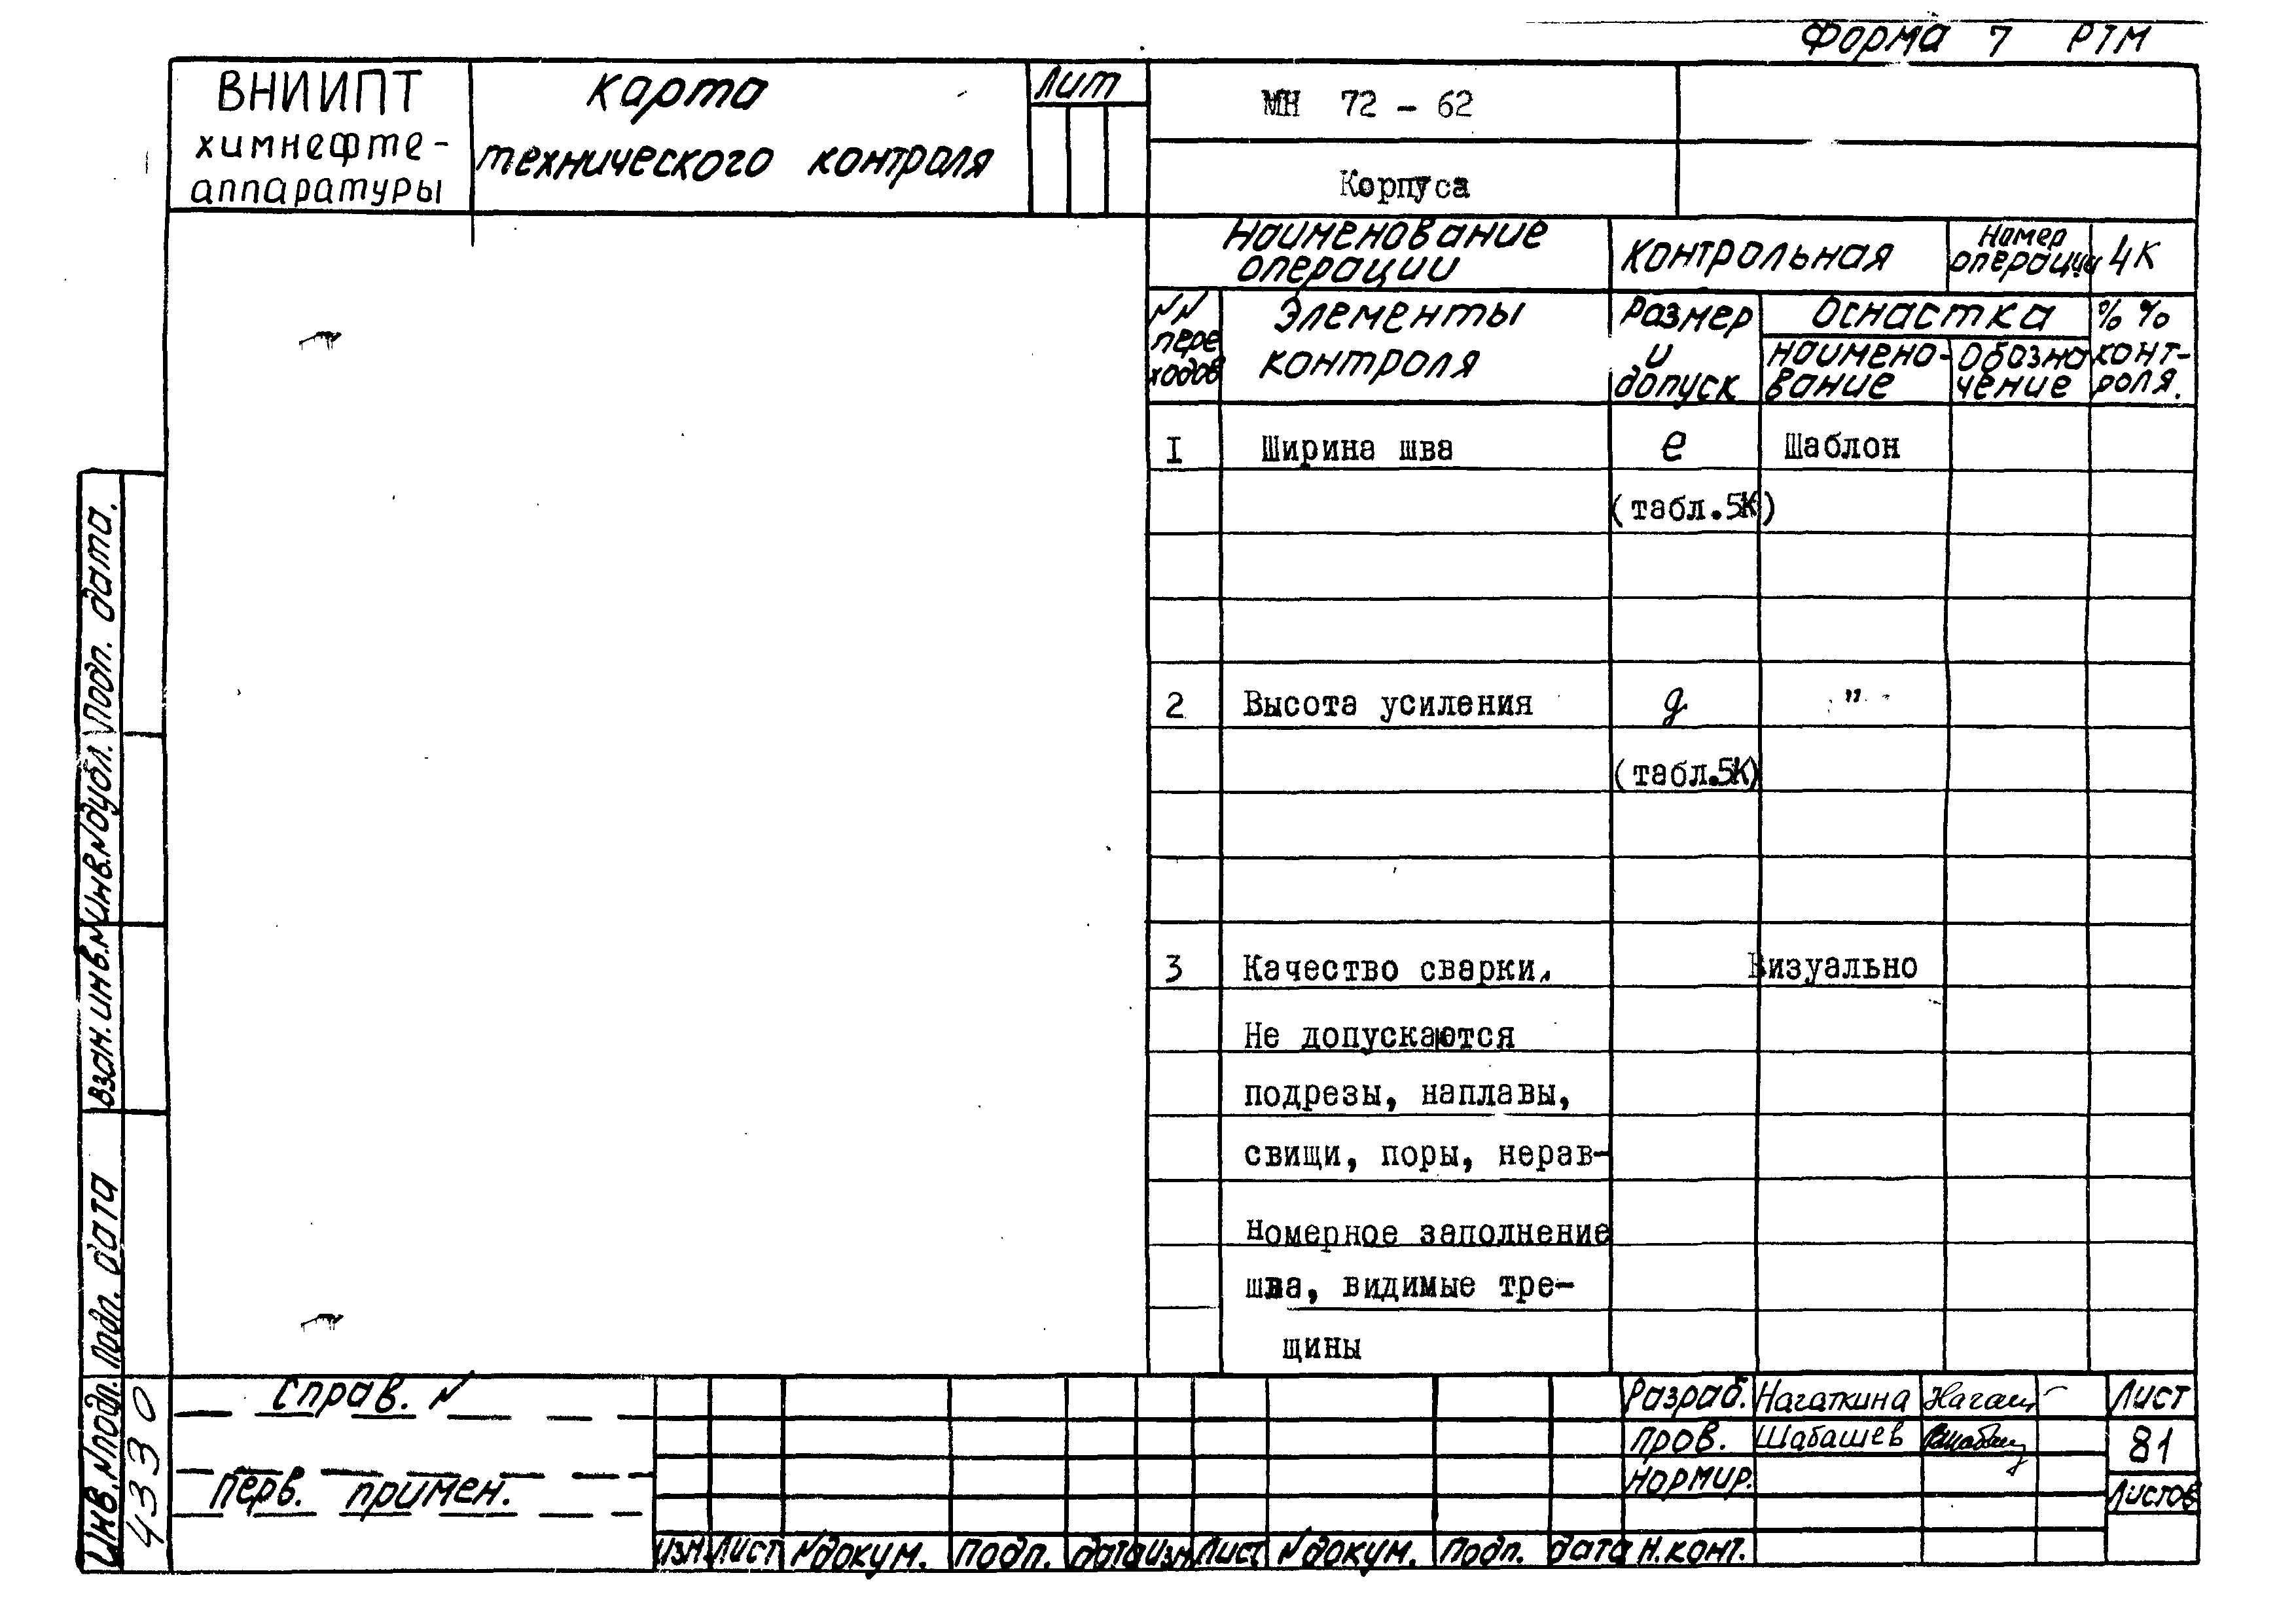 Форма 7 РТМ
ВНИИПТ
химнефте-
аппаратуры
карта
технического контроля
Лит
МН 72 - 62
Корпуса
Наименование
операции
контрольная
Номер
операции
4К
NN
пере
ходов
Элементы
контроля
Размер
и
допуск
Оснастка
наимено-
вание
Обозна
чение
% %
конт-
роля.
I Ширина шва е Шаблон
(табл.5К)
2 Высота усиления g "
(табл.5К)
3 Качество сварки. Визуально
Не допускаются
подрезы, наплавы,
свищи, поры, нерав-
номерное заполнение
шва, видимые тре-
щины
Подп. дата.
Инв.N дубл.
Взам. инв.N
Подп. дата
Инв. N подл.
43330
Справ. N
Перв. примен.
Изм. Лист N докум. Подп. дата Изм Лист N докум. Подп. дата
Разраб. Нагаткина
Пров. Шабашев
Нормир.
Н.конт.
Лист
81
Листов